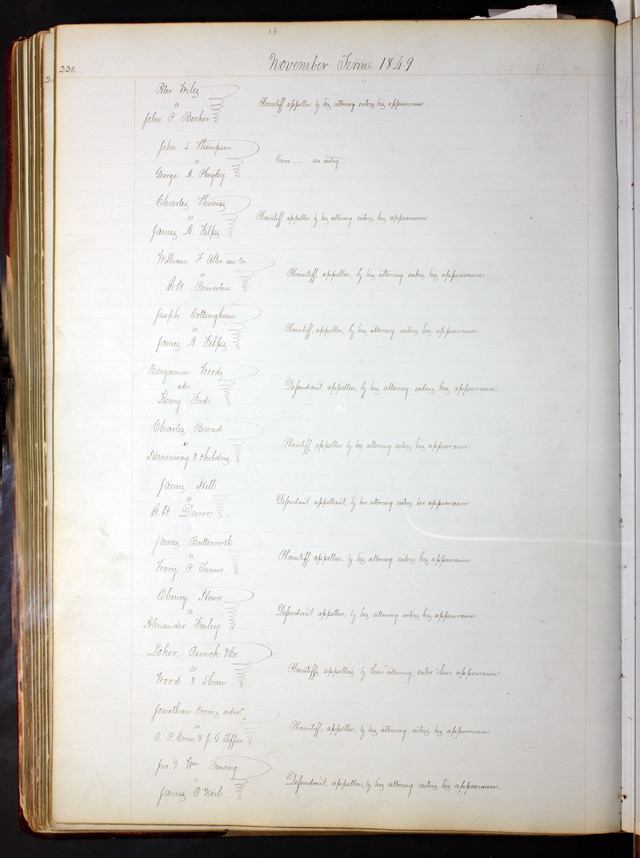 220.
November Term 1849
Peter Wiles
vs
John P. Becker
Plaintiff appellee by his attorney enters his appearance
John S. Thompson
vs
George A.
Error — no entry
Charles Thomas
vs
James A. Kelps
Plaintiff appellee by his attorney enters his appearance
William F. Alter
vs
Plaintiff, appellee, by his attorney enters his appearance
Joseph Cottingham
vs
James A. Kelps
Plaintiff, appellee, by his attorney enters his appearance
Benjamin Woods
ads
Henry
Defendant, appellee, by his attorney enters his appearance
Charles
vs
Plaintiff, appellee by his attorney enters his appearance
James Hill
vs
Defendant, appellant, by her attorney enters her appearance
James Butterworth
vs
P. Turner
Plaintiff appellee, by his attorney enters his appearance
vs
Alexander
Defendant, appellee, by his attorney enters his appearance
& Co.
vs
Wood & Shaw
Plaintiffs, appellees, by their attorney, enter their appearance
Jonathan
vs
O. P. Crow & J. G.
Plaintiff, appellee, by his attorney, enters his appearance
Jno & Wm
vs
James O'Neil
Defendant, appellee, by his attorney enters his appearance.